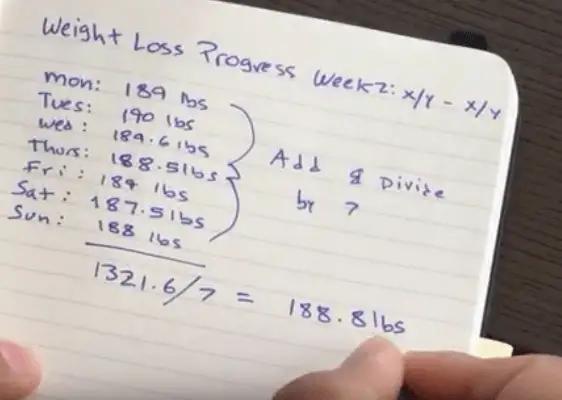 Weight Loss Progress Week 2: x/y - x/y
Mon: 189 lbs
Tues: 190 lbs
Wed: 189.6 lbs
Thurs: 188.5 lbs
Fri: 189 lbs
Sat: 187.5 lbs
Sun: 188 lbs
Add & Divide
by 7
1321.6/7 = 188.8 lbs